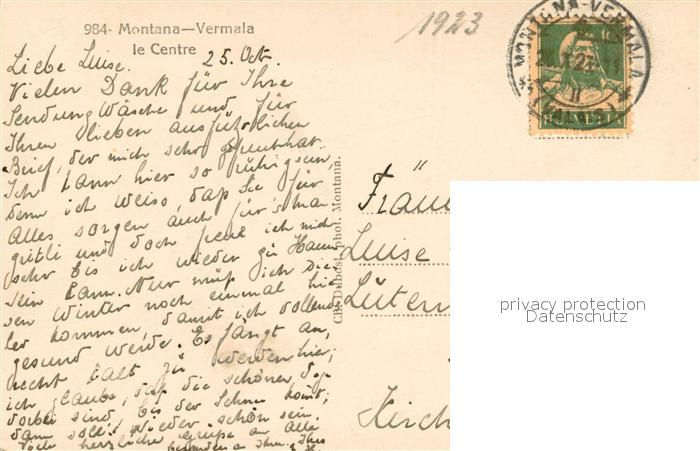 984- Montana—Vermala
le Centre
1923
MONTANA-VERMALA
HELVETIA
Liebe Luise. 25. Oct.
Vielen Dank für Ihre
Sendung Wäsche und für
Ihren lieben ausführlichen
Brief, der mich sehr gefreut hat.
Ich kann hier so ruhig sein,
denn ich weiss, dass Sie für
alles sorgen auch für's Mar-
gritli und doch freue ich mich
sehr bis ich wieder zu Hause
sein kann. Nur muss ich die-
sen Winter noch einmal hie-
her kommen, damit ich vollends
gesund werde. Es fängt an,
recht kalt zu werden hier;
ich glaube, dass die schönen Tage
vorbei sind, bis der Schnee kommt;
dann soll's wieder schön sein.
Viele herzliche Grüsse an alle
besonders an Ihnen. Ihre
phot. Montana.
Fräu
Luise
Lütern
Kirch
privacy protection
Datenschutz